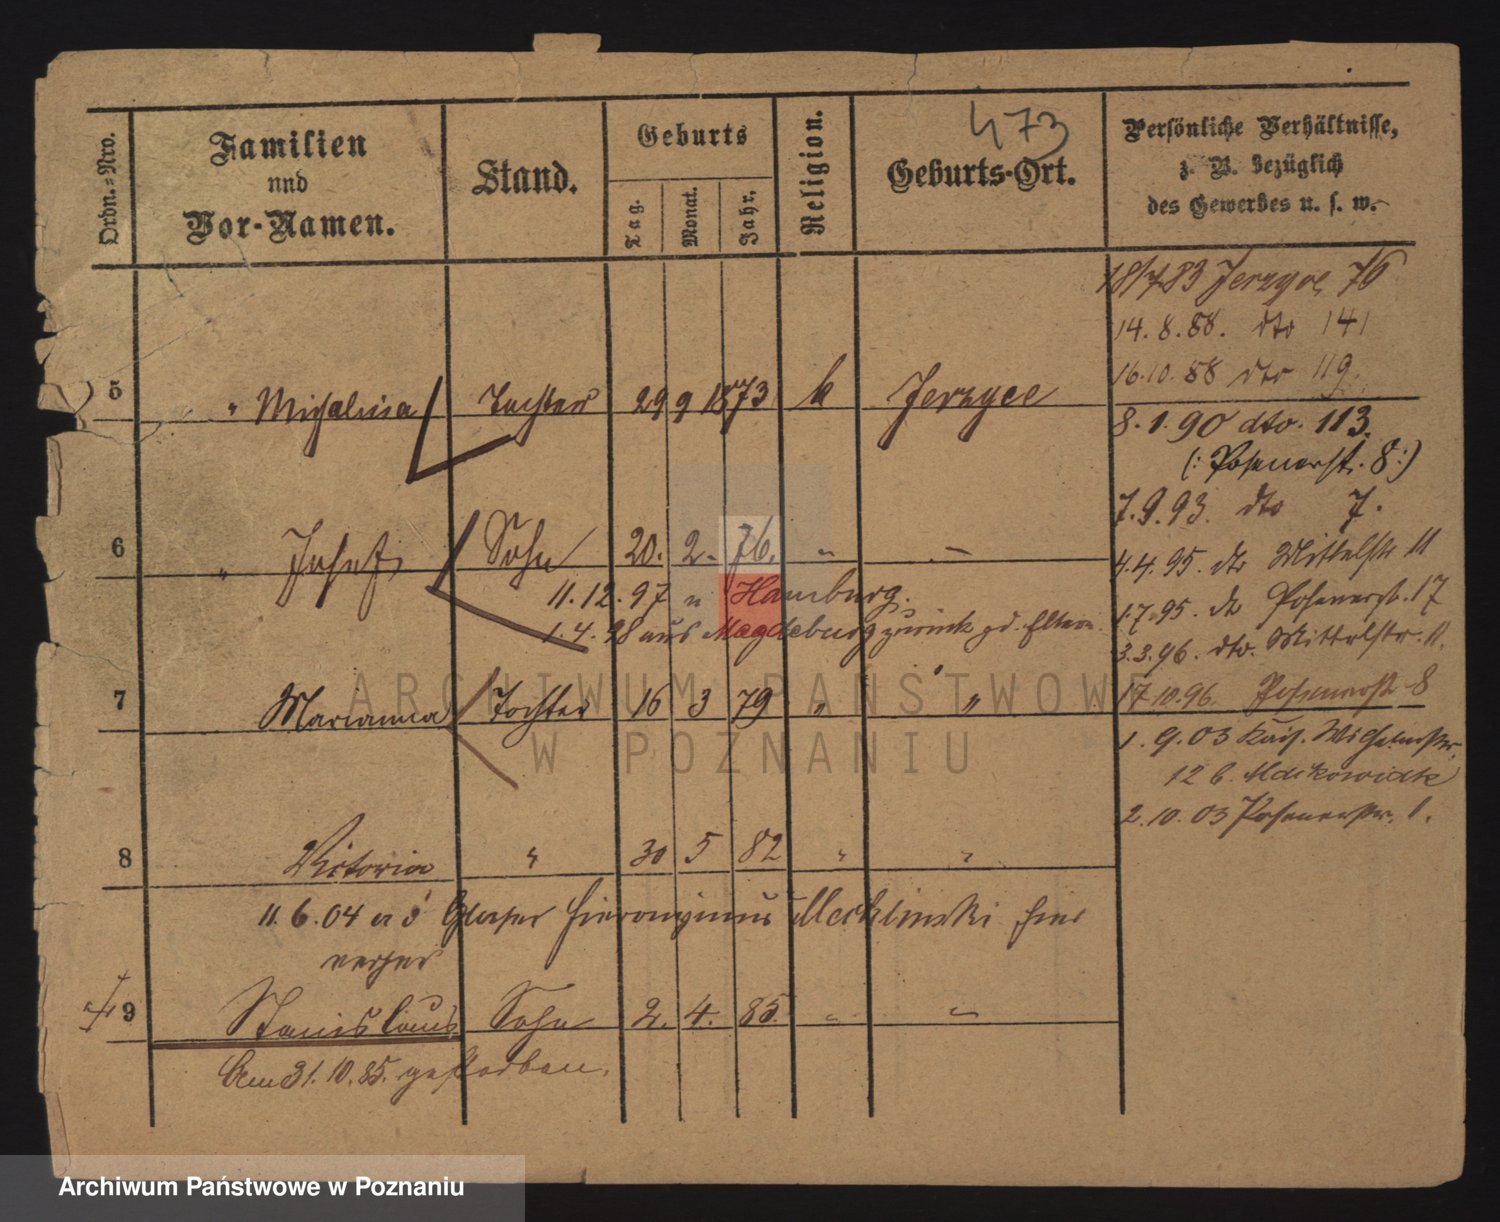 473
Ordn.-Nro.
Familien
und
Vor-Namen.
Stand.
Geburts
Tag.
Monat.
Jahr.
Religion.
Geburts-Ort.
Persönliche Verhältnisse,
z. B. bezüglich
des Gewerbes u. s. w.
18/7 83 Jerzyce 76
14. 8. 88. dto 141
16. 10. 88 dto 119.
5 " Michalina Tochter 29 9 1873 k Jerzyce
8. 1. 90 dto. 113.
(: Posenerst. 8 :)
7. 9. 93. dto 7.
6 " Josef Sohn 20. 2. 76. " "
4. 4. 95. dto Mittelstr 11
11. 12. 97 n Hamburg.
1. 7. 95. dto Posenerst. 17
1. 4. 98 aus Magdeburg zurück zd. Eltern
3. 3. 96. dto. Mittelstr. 11.
7 Marianna Tochter 16 3 79 " "
17. 10. 96. Posenerst 8
1. 9. 03 Kais. Wilhelmstr.
12 b.
2. 10. 03 Posenerstr. 1.
8 Victoria " 30 5 82 " "
11. 6. 04 Glaser Hieronymus Mecklinski hier
9 Stanislaus Sohn 2. 4. 85. " "
Am 31. 10. 85. gestorben.
ARCHIWUM PAŃSTWOWE
W POZNANIU
Archiwum Państwowe w Poznaniu